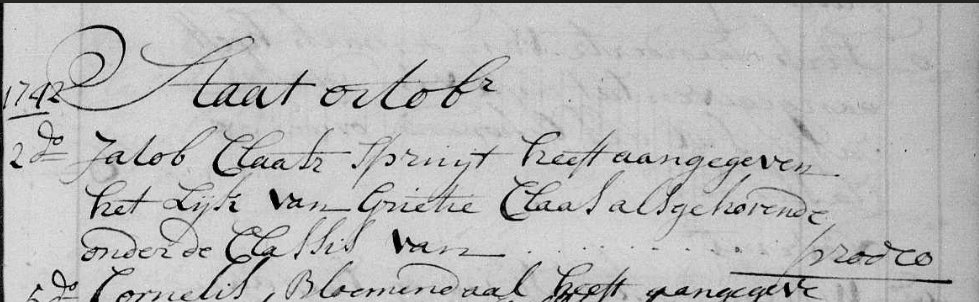 1742 Staat octobr
2 do Jacob Claasz Spruijt heeft aangegeven
het Lijk van Grietie Claas als gehorende
onder de Classis van . . . . . . . . . pro deo
5 do Cornelis Bloemendaal heeft aangegeve